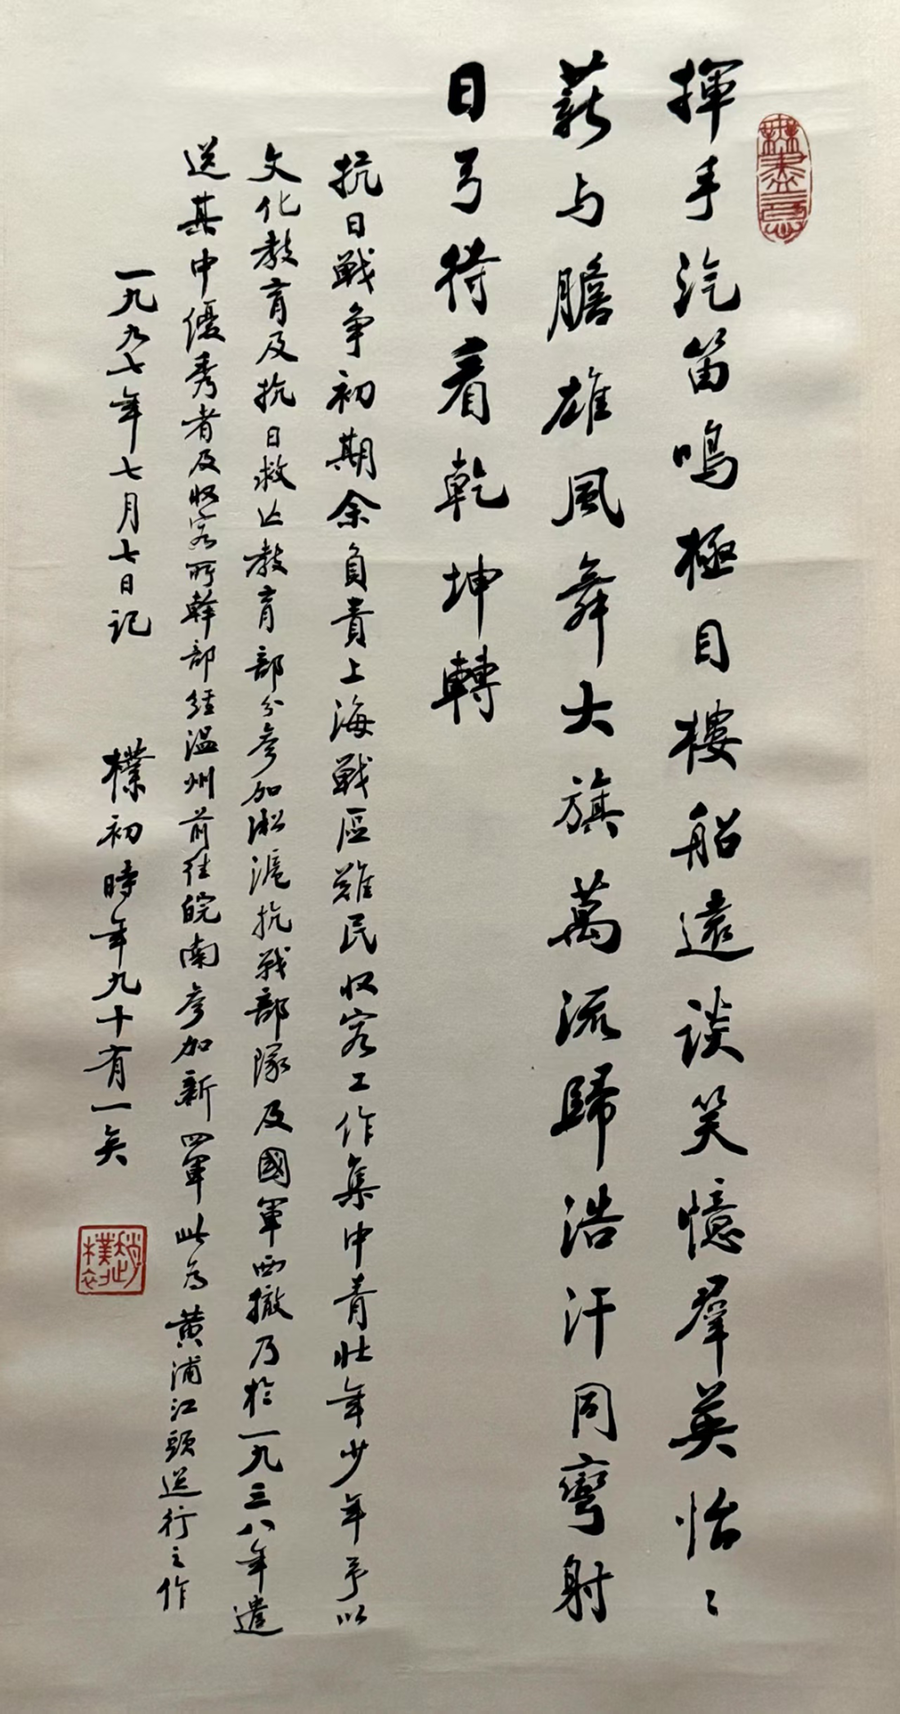 無盡意
揮手汽笛鳴極目樓船遠談笑憶羣英怡〻
薪与膽雄風舞大旗萬流歸浩汗同彎射
日弓待看乾坤轉
抗日戰争初期余負責上海戰区難民収容工作集中青壯年少年予以
文化教育及抗日救亡教育部分參加淞滬抗戰部隊及國軍西撤乃於一九三八年遣
送其中優秀者及収容所幹部經温州前往皖南參加新四軍此為黄浦江頭送行之作
一九九七年七月七日記
樸初時年九十有一矣
趙樸初